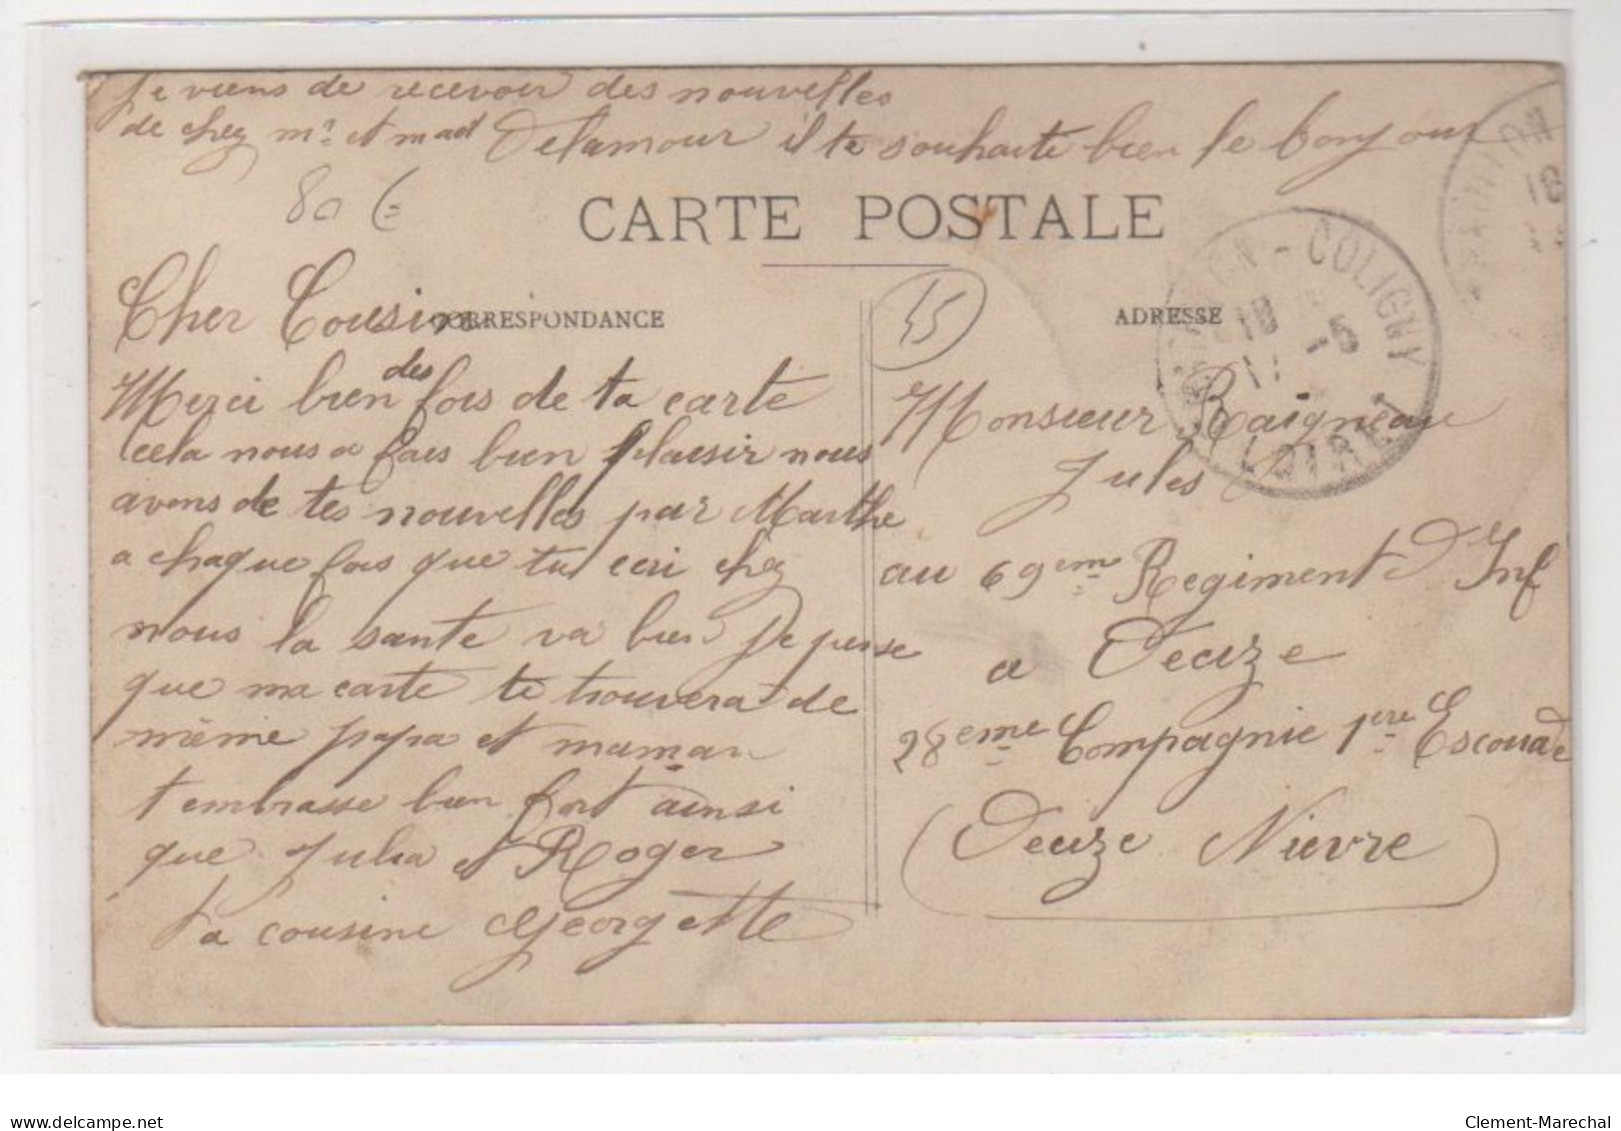 Je viens de recevoir des nouvelles
de chez mr et mad Delamour il te souhaite bien le bonjour
80 €
CARTE POSTALE
CORRESPONDANCE
ADRESSE
45
COLIGNY
18
-5
LOIRET
18
Cher Cousin
Merci bien des fois de ta carte
cela nous a fais bien plaisir nous
avons de tes nouvelles par Marthe
a chaque fois que tu ecri chez
nous la sante va bien Je pense
que ma carte te trouvera de
même papa et maman
t embrasse bien fort ainsi
que Julia et Roger
Ta cousine Georgette
Monsieur Raigneau
Jules
au 69eme Regiment D Inf
a Decize
28eme Compagnie 1ere Escouade
(Decize Nievre)
www.delcampe.net
Clement-Marechal